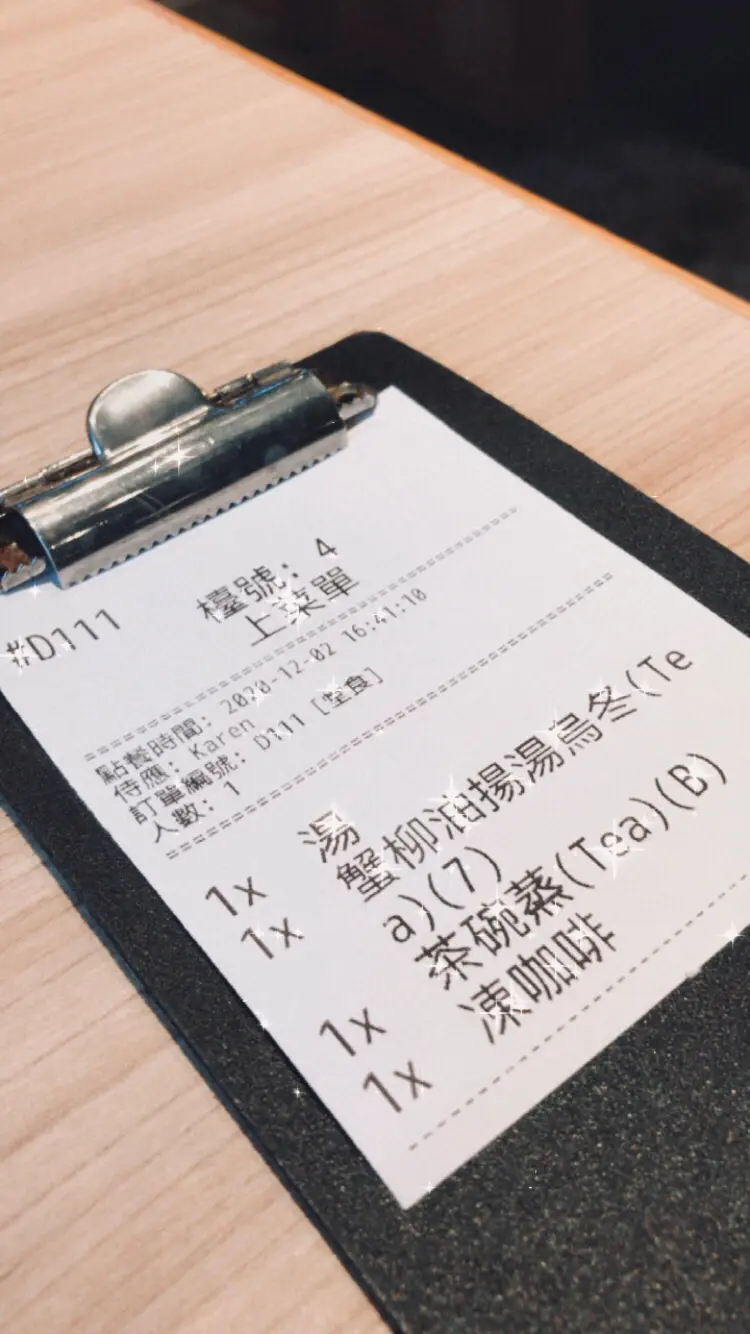 檯號: 4
#D111 上菜單
點餐時間: 2020-12-02 16:41:10
侍應: Karen
訂單編號: D111 [堂食]
人數: 1
1x 湯
1x 蟹柳油揚湯烏冬(Te
a)(7)
1x 茶碗蒸(Tea)(B)
1x 凍咖啡